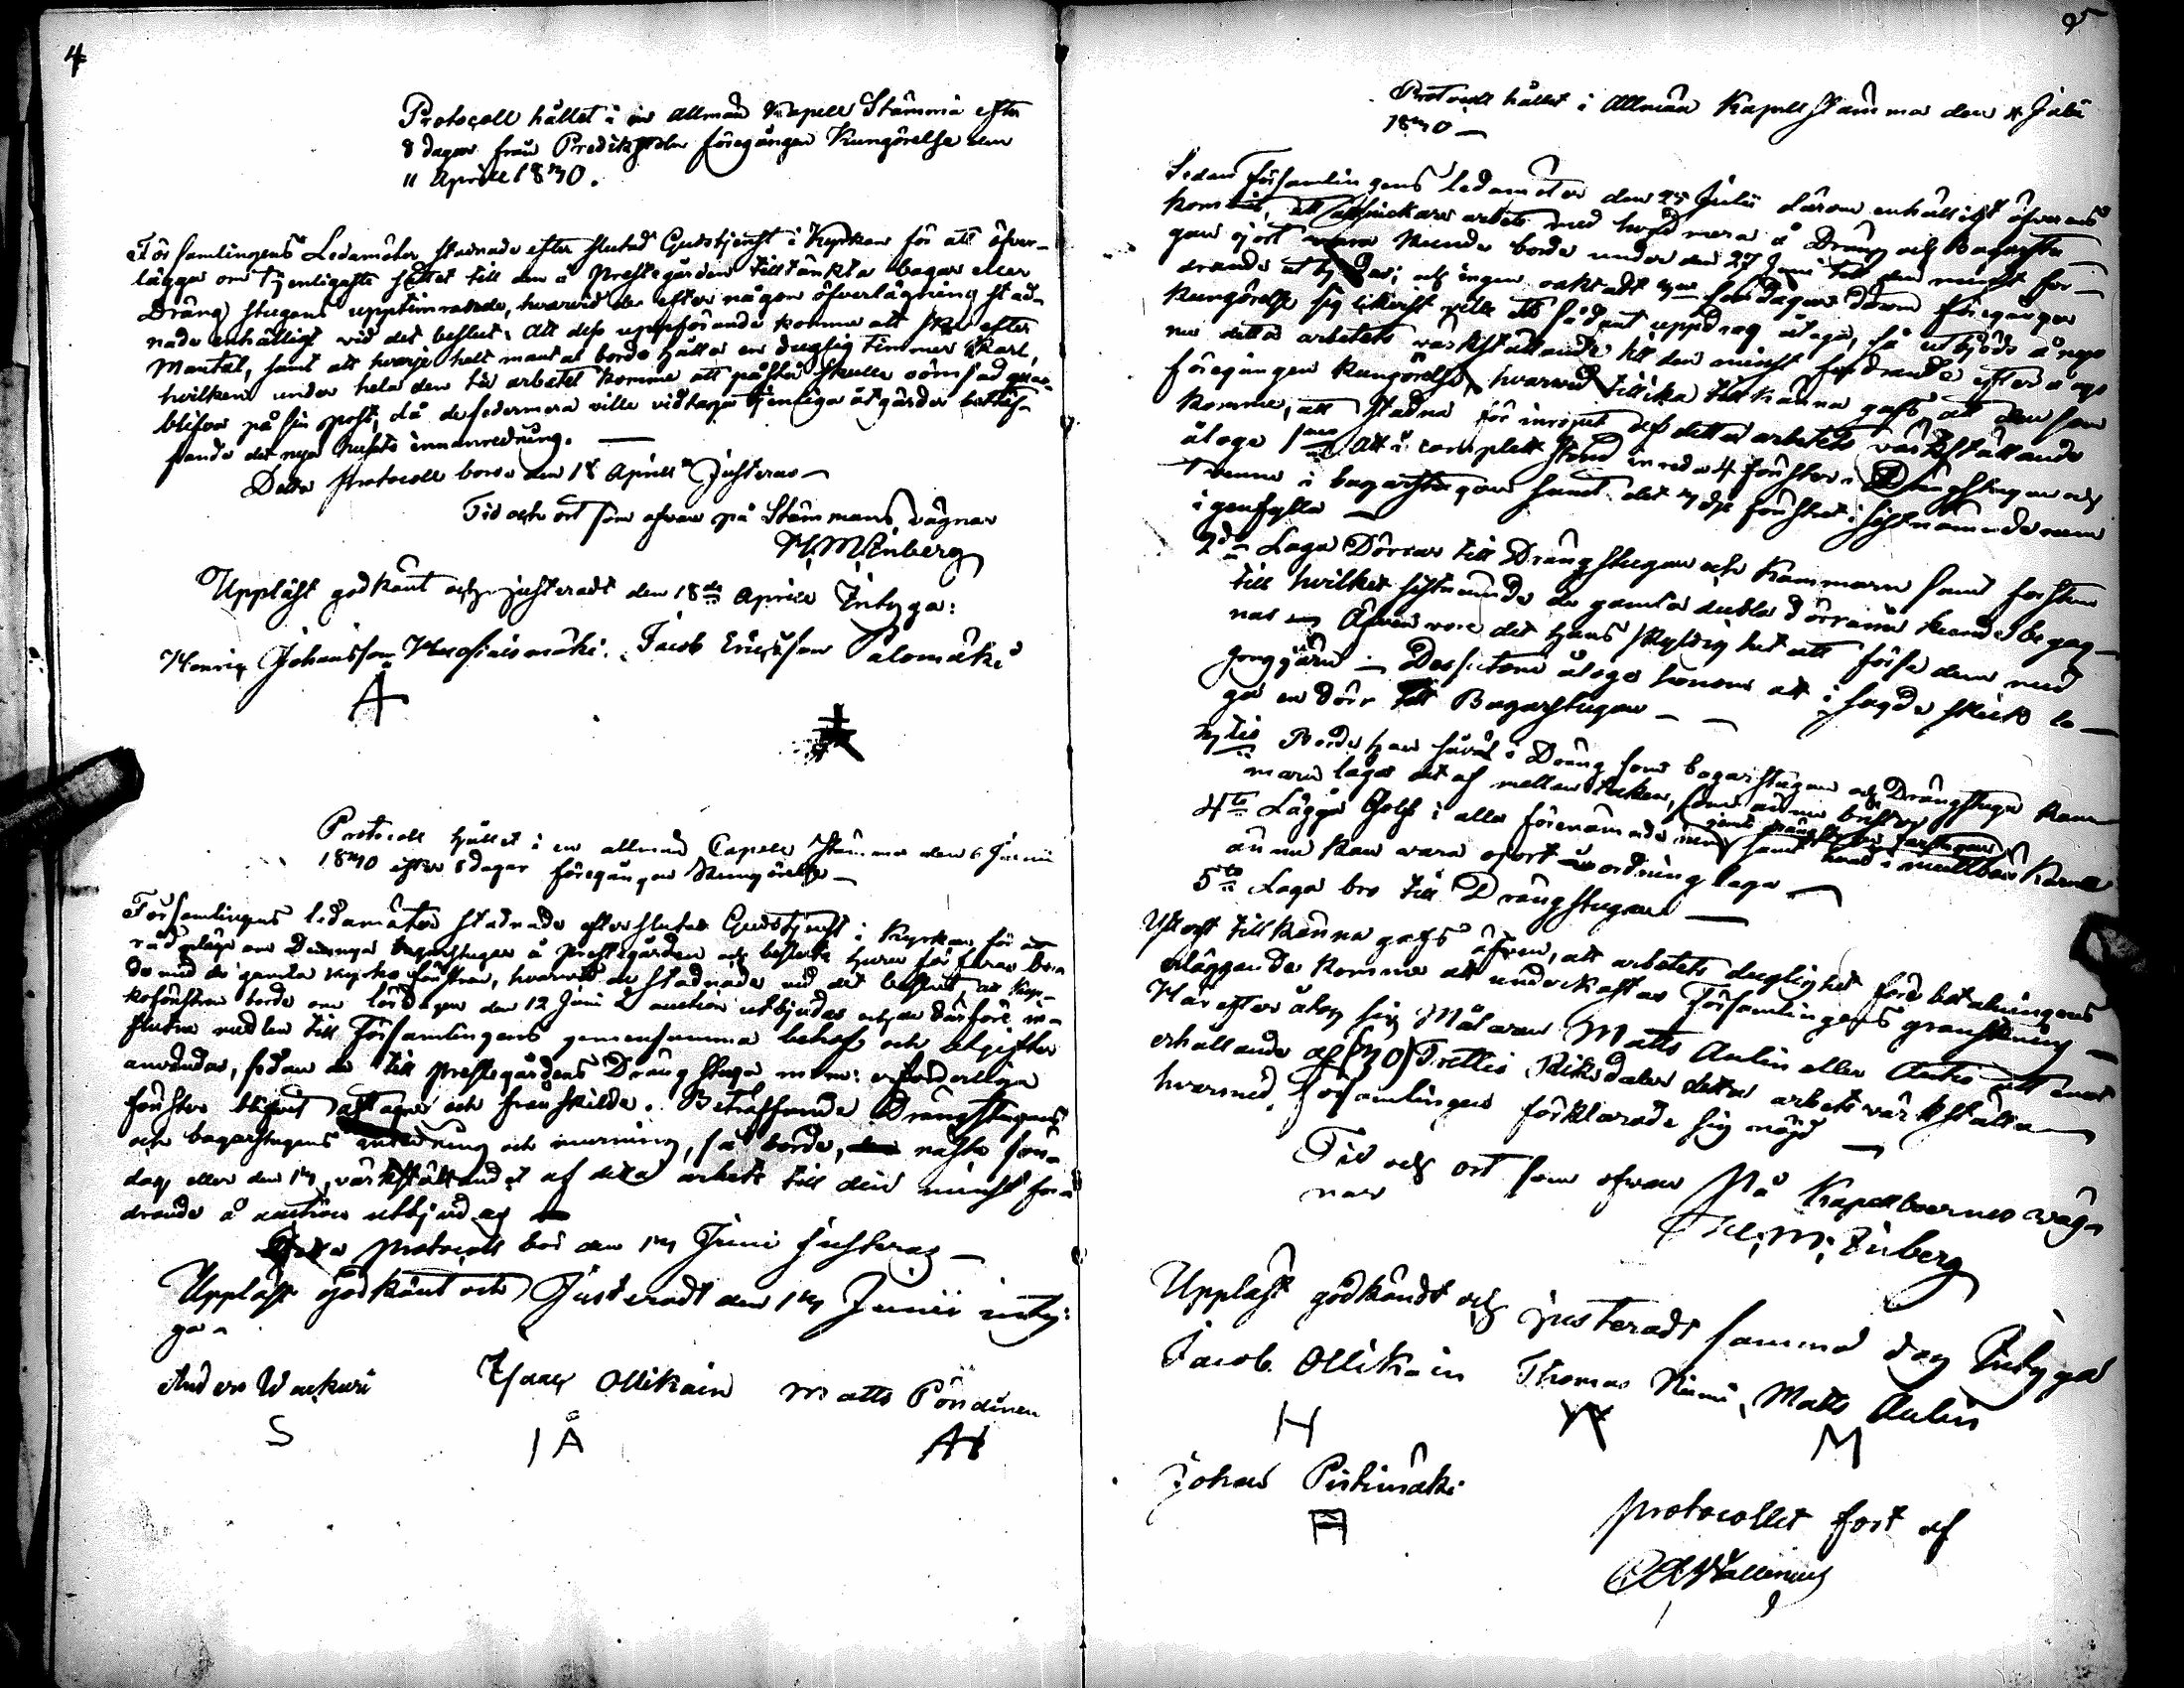 4
Protocoll hållet i en allmän Kapell Stämma efter
8 dagar från Predikstolen föregången Kungörelse den
11 Aprill 1830.
Församlingens Ledamöter stadnade efter slutad Gudstjenst i Kyrkan för att öfver-
lägga om tjenligaste sättet till den å Prestegården tilltänkta bagar eller
Dräng stugans upptimrande, hvarvid de efter någon öfverlägning stad-
nade enhälligt vid det beslut: att dess uppförande komme att ske efter
Mantal, samt att hvarje helt mantal borde hålla en dugtig timmer Karl,
hvilken under hela den tid arbetet komme att påstå skulle oömsad qvar-
blifva på sin post, då de sedermera ville vidtaga tjenliga åtgärder beträf-
fande det nya husets innanredning. —
Detta Protocoll borde den 18 Aprill Justeras —
Tid och ort som ofvan på Stämmans vägnar
H. M. Enberg
Uppläst godkänt och justeradt den 18de Aprill Intyga:
Henric Johansson Jacob Ericsson Palomäki
Protocoll hållet i en allmän Capell Stämma den 6 Junii
1830 efter 8 dagar föregången Kungörelse —
Församlingens ledamöter stadnade efter slutad Gudstjenst i Kyrkan för att
rådpläga om Den nya bagarstugan å Prestegården och besluta huru förfaras bor-
de med de gamla kyrko fönstren, hvarvid de stadnade vid det beslut att kyr-
kofönstren borde om lördagen den 12 Junii å auction utbjudas och de därföre in-
flutne medlen till Församlingens gemensamma behof och utgifter
användas, sedan de till Prestegårdens Drängstuga m:m: erforderliga
fönster blifvit aftagna och frånskilde. Beträffande Drängstugans
och bagarstugans inredning och murning, så borde, nästa sön-
dag eller den 13, värkställandet af detta arbete till den minst for-
drande å auction utbjudas
Detta Protocoll bör den 13 Junii justeras —
Uppläst Godkänt och Justeradt den 13 Junii inty-
ga
Anders Wackuri Isaac Ollikain Matts Pöndinen
S IÅ
5
Protocoll hållet i Allmän Kapell Stämma den 4 Julii
1830 —
Sedan Församlingens ledamöter den 25 Julii därom enhälligt öfverens
kommit, att snickare arbete med hvad mera å Dräng och Bagarstu-
gan ogjort vara kunde borde under den 27 Junii till den minst for-
drande utbjudas; och ingen oaktadt dagar därom föregången
Kungörelse sig likväl ville ett sådant uppdrag åtaga, så utbjöds å nyo
nu detta arbetets värkställande till den minst fordrande efter å nyo
föregången Kungörelse, hvarvid tillika tillkänna gafs, att den som
komme, att stadna för inropet af detta arbetets värkställande
åloge 1mo att i complett stånd inreda 4 fönster i Drängstugan och
trenne i bagarstugan samt det 3dje fönstret i sistnämnde rum
igenfylla —
2do Laga Dörrar till Drängstugan och Kammarn samt förstun
till hvilket sistnämnde de gamla dubla dörrarne kunde begag-
nas Äfven vore det hans skyldighet att förse dem med
gongjärn — Dessutom åloge honom att i sagde skick la-
ga en dörr till Bagarstugan —
3tio Borde han såväl i Dräng som bagarstugan och Drängstugu kam-
marn laga det af mellantaken, som ännu brister
4to Lägga Golf i alla förenämnde rum samt hvad i Kamar
ännu kan vara ogjort i ordning laga —
5to Laga bro till Drängstugan —
Ytterst tillkänna gafs äfven, att arbetets duglighet före betalningens
erläggande komme att underkastas Församlingens granskning —
Härefter åtog sig Målaren Matts Aulin eller Antio att emot
erhållande af (30) Trettio Riksdaler detta arbete värkställa —
hvarmed Församlingen förklarade sig nöjd —
Tid och ort som ofvan På Kapellboernes väg-
nar
H. M. Enberg
Uppläst godkändt och justeradt samma dag Intyga
Jacob Ollikain Thomas Niemi, Matts Aulin
H M
Johan Pistimäki
Protocollet fört af